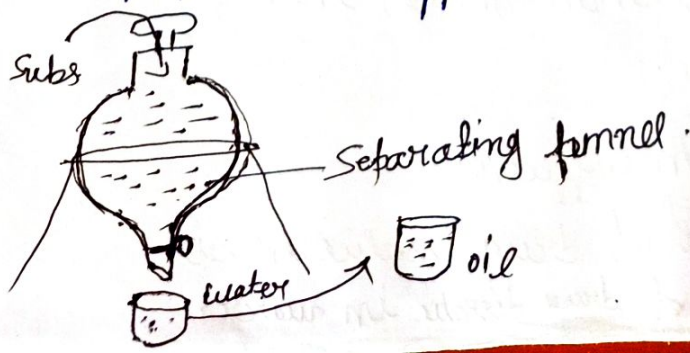 Subs
Separating funnel.
water
oil